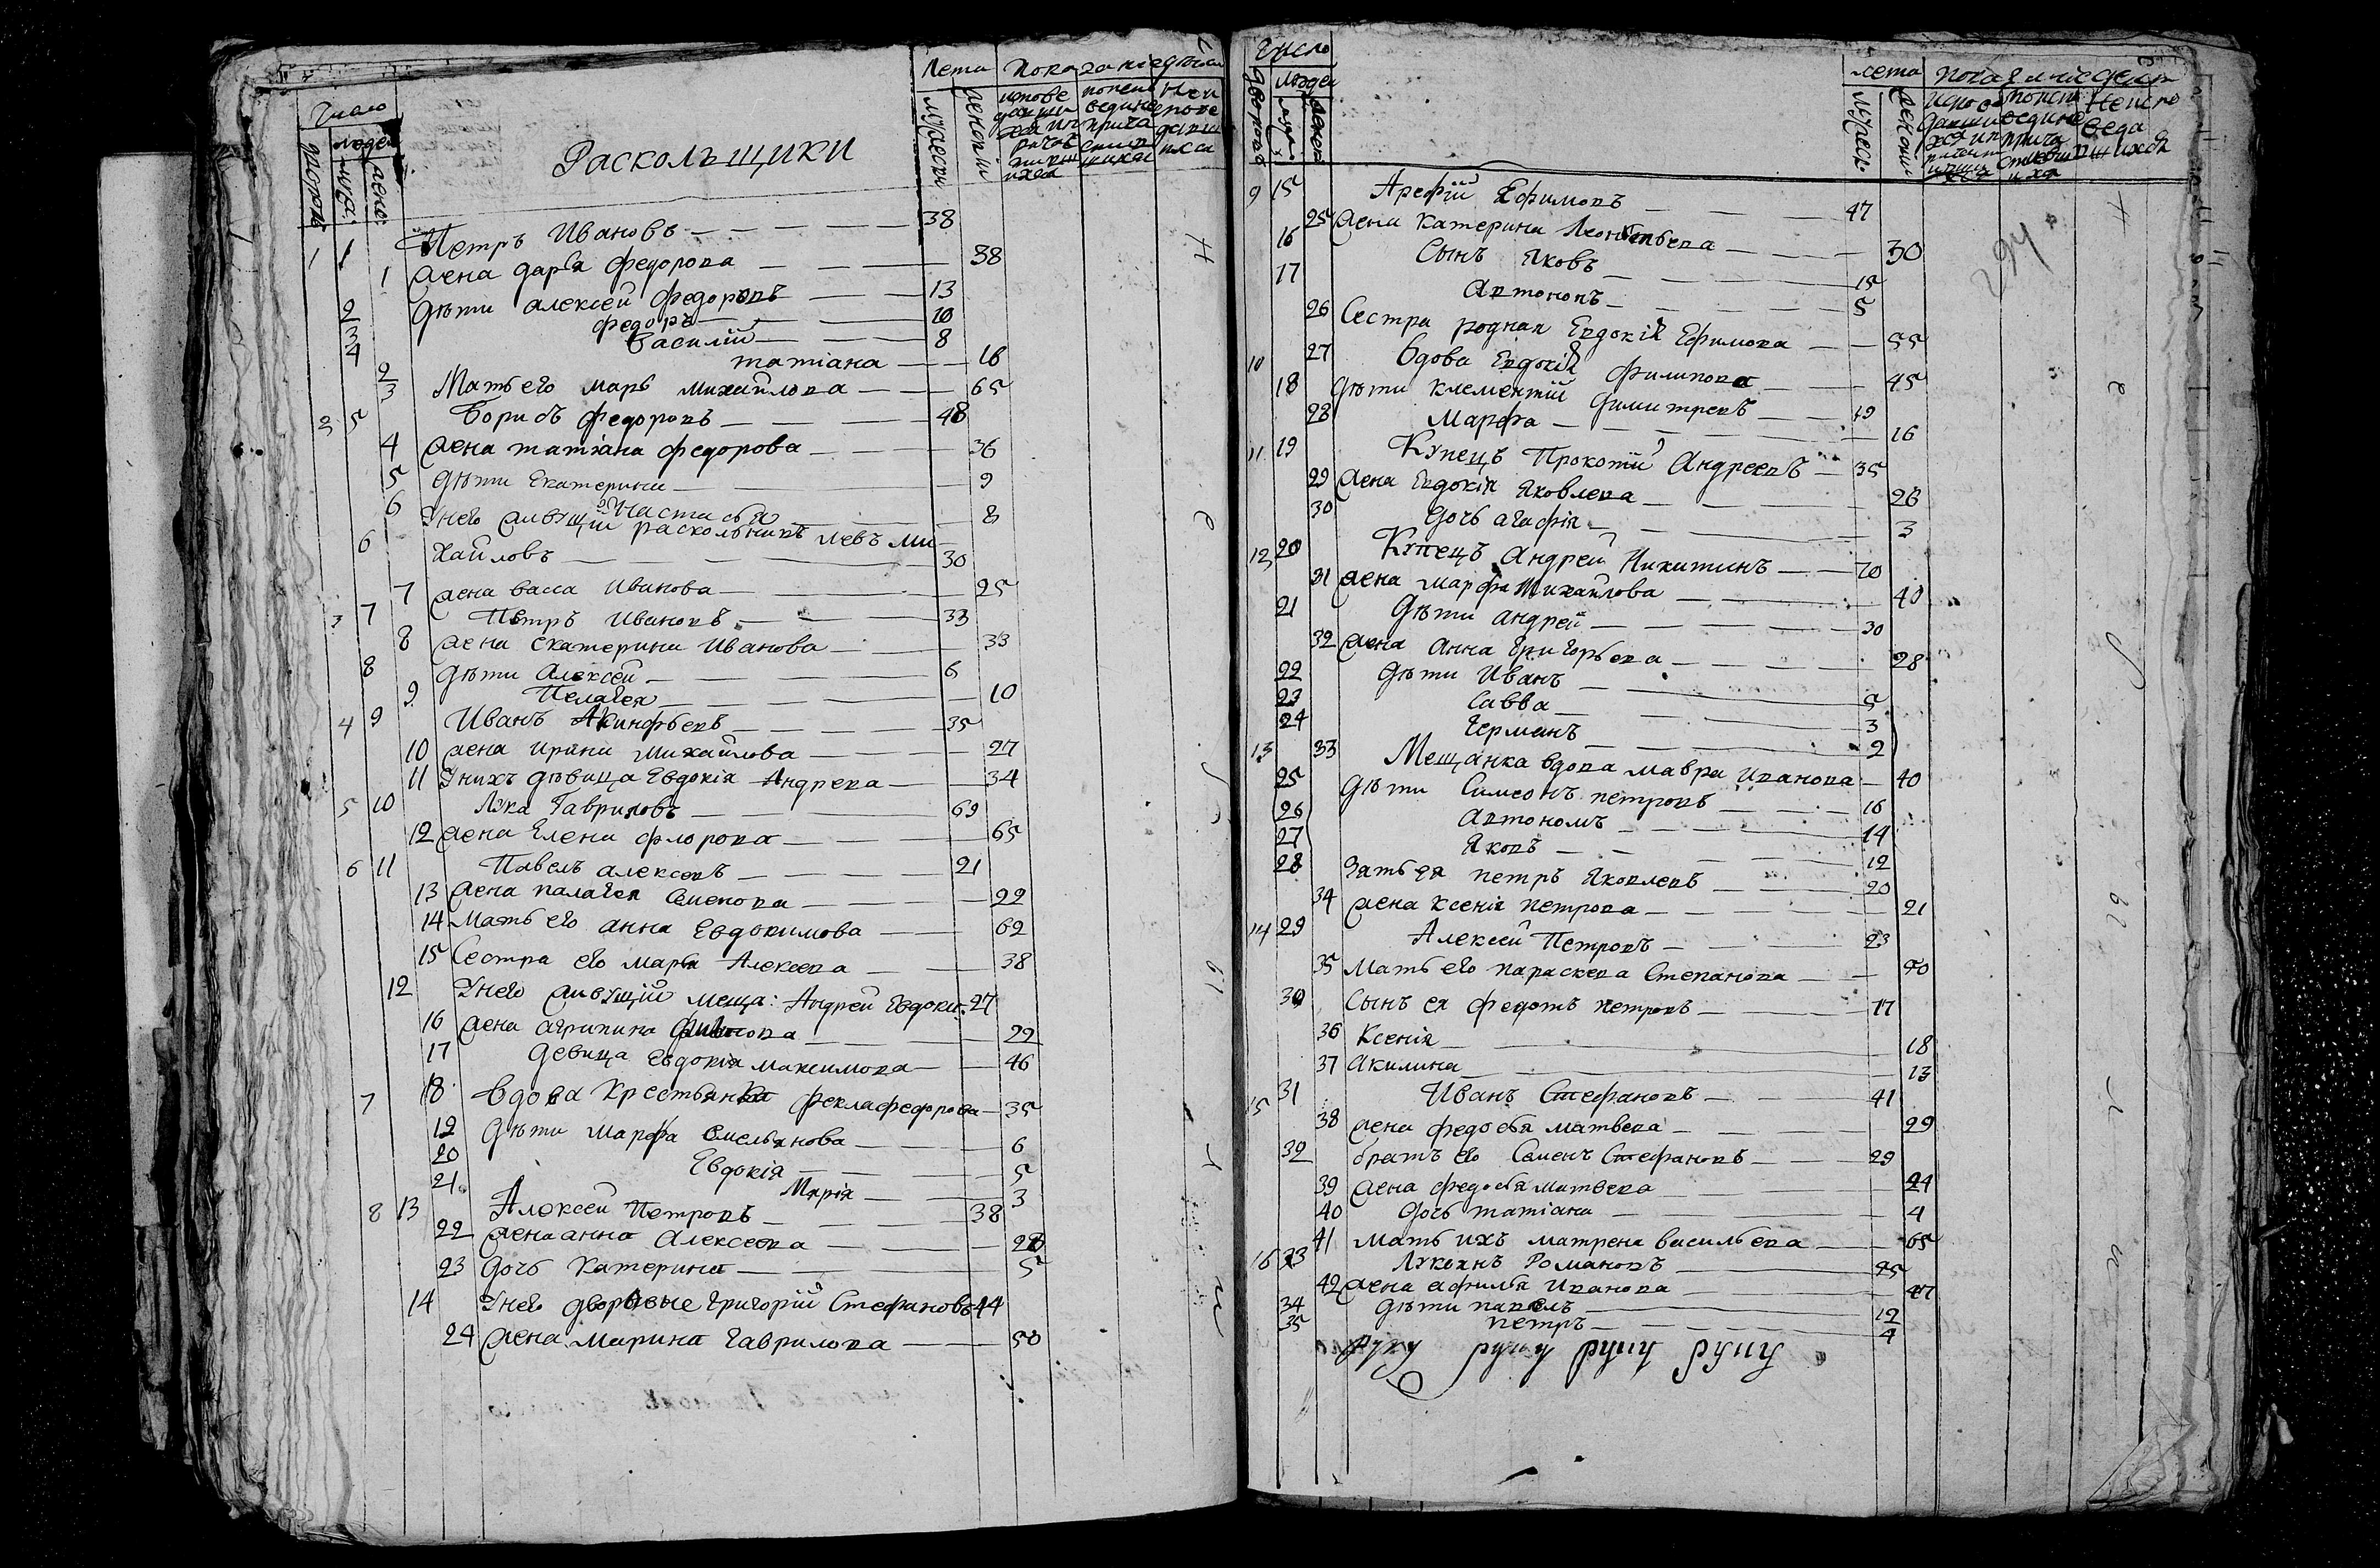 Число
людей
дворовъ
муж:
женъ:
РАСКОЛЬЩИКИ
Лета
мужески
женски
Показание действа
1 1 Петръ Ивановъ 38
1 жена дарья федорова 38
2 дѣти алексей федоровъ 13
3 федоръ 10
4 Василий 8
2 татиана 16
3 Мать его марь михайлова 65
2 5 Борисъ федоровъ 48
4 жена татиана федорова 36
5 дѣти Екатерина 9
6 Настасья 8
6 Унего живущий раскольникъ левъ ми
хайловъ 30
7 жена васса Иванова 25
3 7 Петръ Ивановъ 33
8 жена екатерина Иванова 33
8 дѣти Алексей 6
9 Пелагея 10
4 9 Иванъ Акинфьевъ 35
10 жена ирина михайлова 27
11 Унихъ дѣвица Евдокия Андреева 34
5 10 Лука Гавриловъ 69
12 жена Елена флорова 65
6 11 Павелъ алексеевъ 21
13 жена палагея Семенова 22
14 Мать его анна Евдокимова 62
15 Сестра его марья Алексеева 38
12 Унего живущий меща: Андрей Евдоки: 27
16 жена агрипина 22
17 Девица евдокия максимова 46
7 18 Вдова Крестьянка фекла федорова 35
19 дѣти марфа Емельянова 6
20 Евдокия 5
21 Мария 3
8 13 Алексей Петровъ 38
22 жена анна Алексеева
23 дочь Катерина 5
14 Унего дворовые Григорий Стефановъ 44
24 жена марина Гаврилова 50
Число
людей
дворовъ
муж:
женъ
лета
мужеск:
женски
показание действ
9 15 Арефий Ефимовъ 47
25 жена Катерина Леонтьева 30
16 Сынъ Яковъ 15
17 Автономъ 5
26 Сестра родная Евдокия Ефимова 55
10 27 Вдова Евдокия Филипова 45
18 дѣти Клементий Димитревъ 19
28 Марфа 16
11 19 Купецъ Прокопий Андреевъ 35
29 жена Евдокия Яковлева 26
30 дочь агафия 3
12 20 Купецъ Андрей Никитинъ 70
31 жена марфа Михайлова 40
21 дѣти андрей 30
32 жена анна Григорьева 28
22 дѣти Иванъ 5
23 Савва 3
24 Германъ 2
13 33 Мещанка вдова мавра иванова 40
25 дѣти Симеонъ петровъ 16
26 автономъ 14
27 Яковъ 12
28 Зять ея петръ Яковлевъ 20
34 жена ксения петрова 21
14 29 Алексей Петровъ 23
35 Мать его параскева Степанова 50
30 Сынъ ея федотъ петровъ 17
36 Ксения 18
37 Акилина 13
15 31 Иванъ Стефановъ 41
38 жена федосья матвева 29
32 братъ его Семенъ Стефановъ 29
39 жена федосья матвева 24
40 дочь татиана 4
41 мать ихъ матрена васильева 65
16 33 Лукианъ Романовъ 45
42 жена афимья иванова 47
34 дѣти павелъ 12
35 петръ 4
руку
294